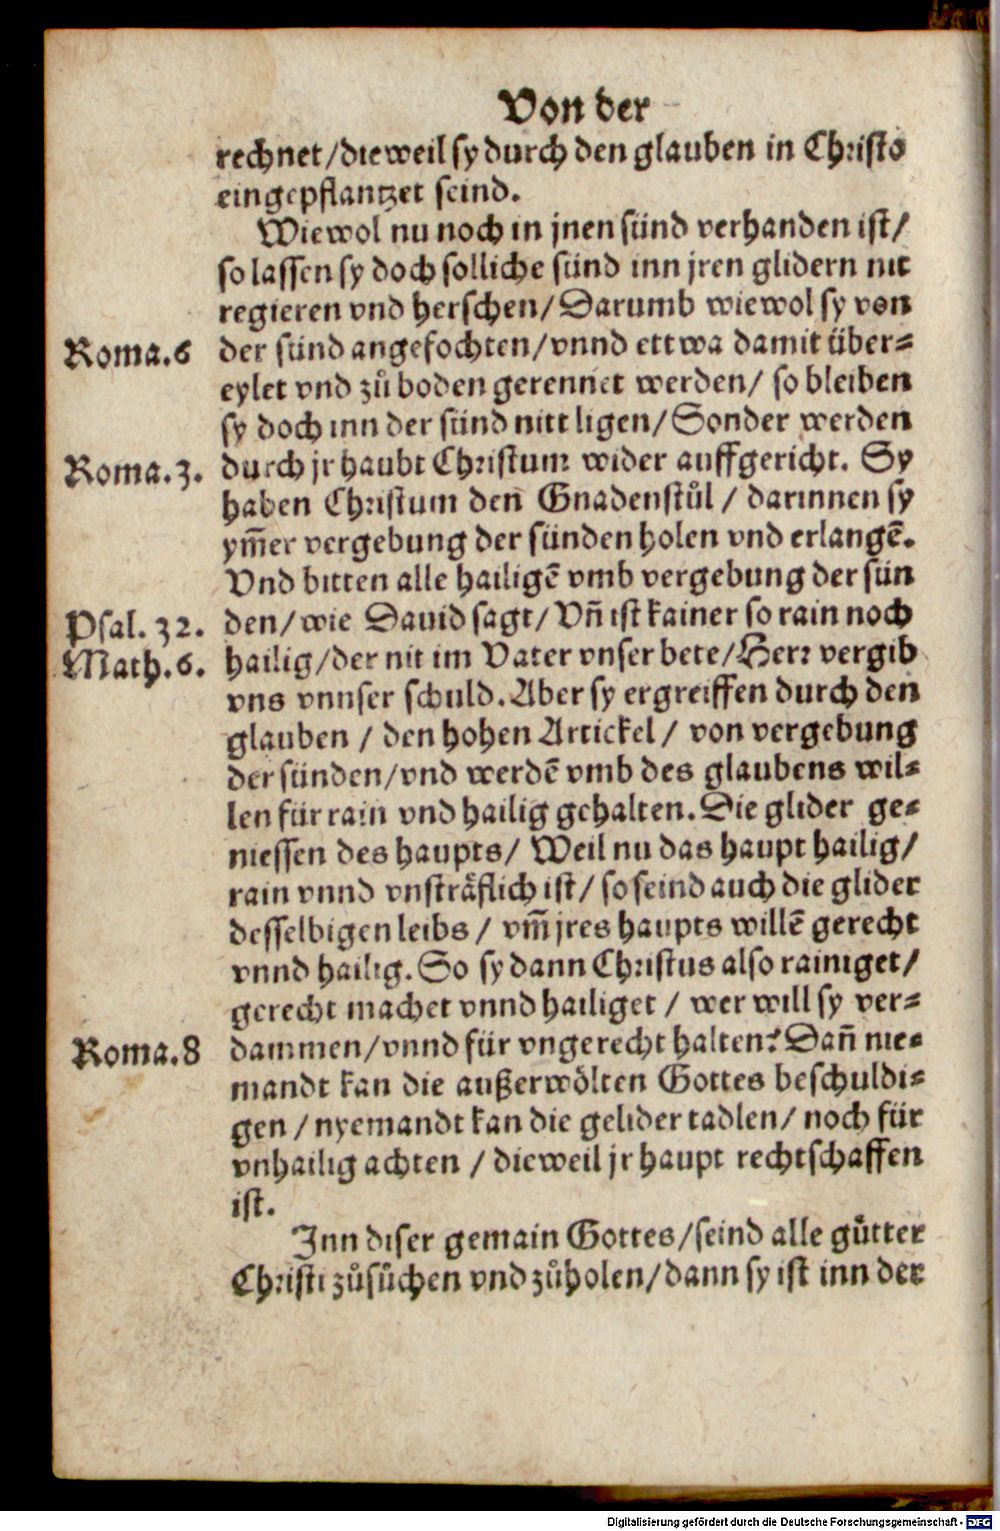 Von der
rechnet/dieweil sy durch den glauben in Christo
eingepflantzet seind.
Wiewol nu noch in jnen sünd verhanden ist/
so lassen sy doch solliche sünd inn jren glidern nit
regieren vnd herschen/Darumb wiewol sy von
Roma.6 der sünd angefochten/vnnd ettwa damit über-
eylet vnd zů boden gerennet werden/ so bleiben
sy doch inn der sünd nitt ligen/Sonder werden
Roma.3. durch jr haubt Christum wider auffgericht. Sy
haben Christum den Gnadenstůl / darinnen sy
ym̃er vergebung der sünden holen vnd erlangẽ.
Vnd bitten alle hailigẽ vmb vergebung der sün
Psal. 32. den/wie Dauid sagt/Vñ ist kainer so rain noch
Math.6. hailig/der nit im Vater vnser bete/Herr vergib
vns vnnser schuld.Aber sy ergreiffen durch den
glauben / den hohen Artickel / von vergebung
der sünden/vnd werdẽ vmb des glaubens wil-
len für rain vnd hailig gehalten.Die glider ge-
niessen des haupts/ Weil nu das haupt hailig/
rain vnnd vnsträflich ist/ so seind auch die glider
desselbigen leibs / vm̃ jres haupts willẽ gerecht
vnnd hailig.So sy dann Christus also rainiget/
gerecht machet vnnd hailiget / wer will sy ver-
Roma.8 dammen/vnnd für vngerecht halten? Dañ nie-
mandt kan die außerwölten Gottes beschuldi-
gen / nyemandt kan die gelider tadlen/ noch für
vnhailig achten / dieweil jr haupt rechtschaffen
ist.
Inn diser gemain Gottes/seind alle gütter
Christi zůsůchen vnd zůholen/dann sy ist inn der
Digitalisierung gefördert durch die Deutsche Forschungsgemeinschaft - DFG